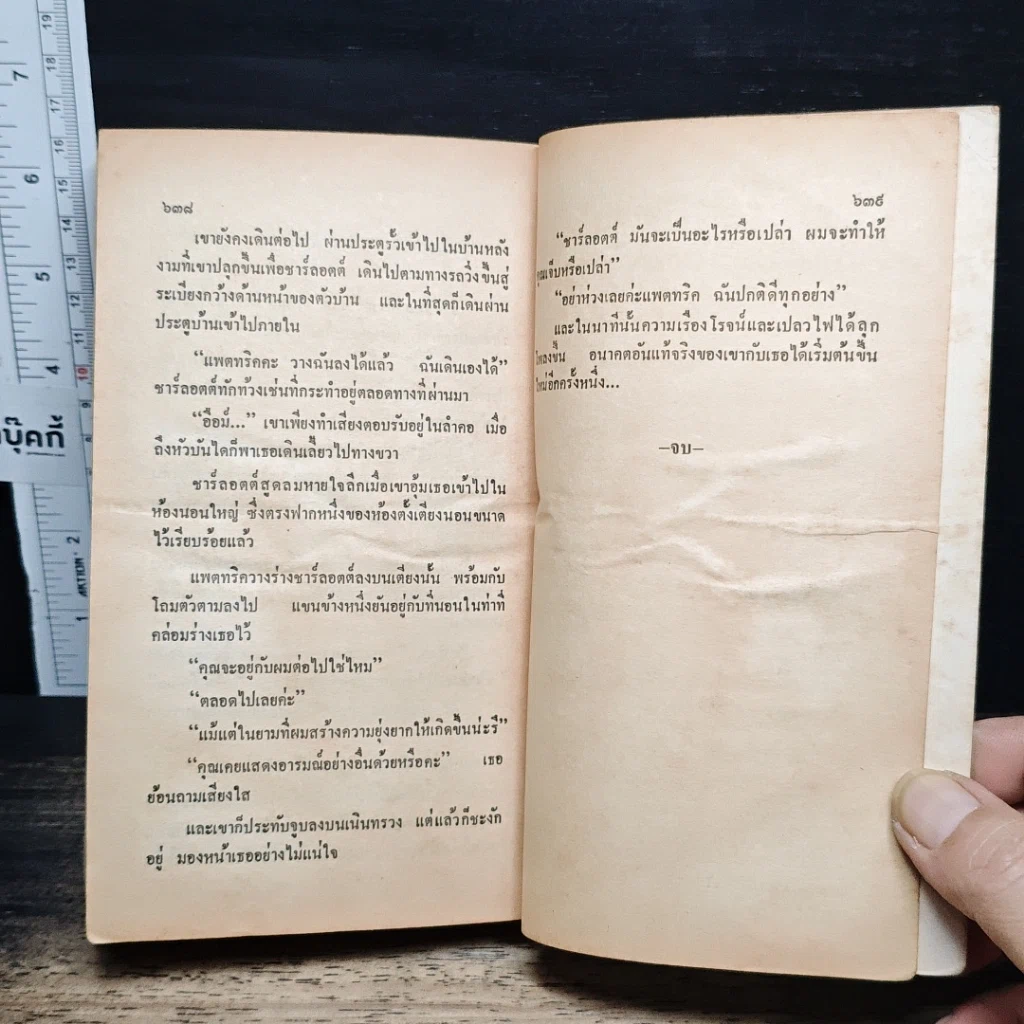 ๖๓๘
เขายังคงเดินต่อไป ผ่านประตูรั้วเข้าไปในบ้านหลัง
งามที่เขาปลุกขึ้นเพื่อชาร์ลอตต์ เดินไปตามทางรถวิ่งขึ้นสู่
ระเบียงกว้างด้านหน้าของตัวบ้าน และในที่สุดก็เดินผ่าน
ประตูบ้านเข้าไปภายใน
“แพตทริคคะ วางฉันลงได้แล้ว ฉันเดินเองได้”
ชาร์ลอตต์ทักท้วงเช่นที่กระทำอยู่ตลอดทางที่ผ่านมา
“อื้อม์...” เขาเพียงทำเสียงตอบรับอยู่ในลำคอ เมื่อ
ถึงหัวบันไดก็พาเธอเดินเลี้ยวไปทางขวา
ชาร์ลอตต์สูดลมหายใจลึกเมื่อเขาอุ้มเธอเข้าไปใน
ห้องนอนใหญ่ ซึ่งตรงฟากหนึ่งของห้องตั้งเตียงนอนขนาด
ไว้เรียบร้อยแล้ว
แพตทริควางร่างชาร์ลอตต์ลงบนเตียงนั้น พร้อมกับ
โถมตัวตามลงไป แขนข้างหนึ่งยันอยู่กับที่นอนในท่าที่
คล่อมร่างเธอไว้
“คุณจะอยู่กับผมต่อไปใช่ไหม”
“ตลอดไปเลยค่ะ”
“แม้แต่ในยามที่ผมสร้างความยุ่งยากให้เกิดขึ้นน่ะรึ”
“คุณเคยแสดงอารมณ์อย่างอื่นด้วยหรือคะ” เธอ
ย้อนถามเสียงใส
และเขาก็ประทับจูบลงบนเนินทรวง แต่แล้วก็ชะงัก
อยู่ มองหน้าเธออย่างไม่แน่ใจ
๖๓๙
“ชาร์ลอตต์ มันจะเป็นอะไรหรือเปล่า ผมจะทำให้
คุณเจ็บหรือเปล่า”
“อย่าห่วงเลยค่ะแพตทริค ฉันปกติดีทุกอย่าง”
และในนาทีนั้นความเรืองโรจน์และเปลวไฟได้ลุก
โพลงขึ้น อนาคตอันแท้จริงของเขากับเธอได้เริ่มต้นขึ้น
ใหม่อีกครั้งหนึ่ง...
—จบ—
บุ๊คกี้
AKTION
7
6
5
4
2
1
19
18
17
16
15
14
13
12
11
10
9